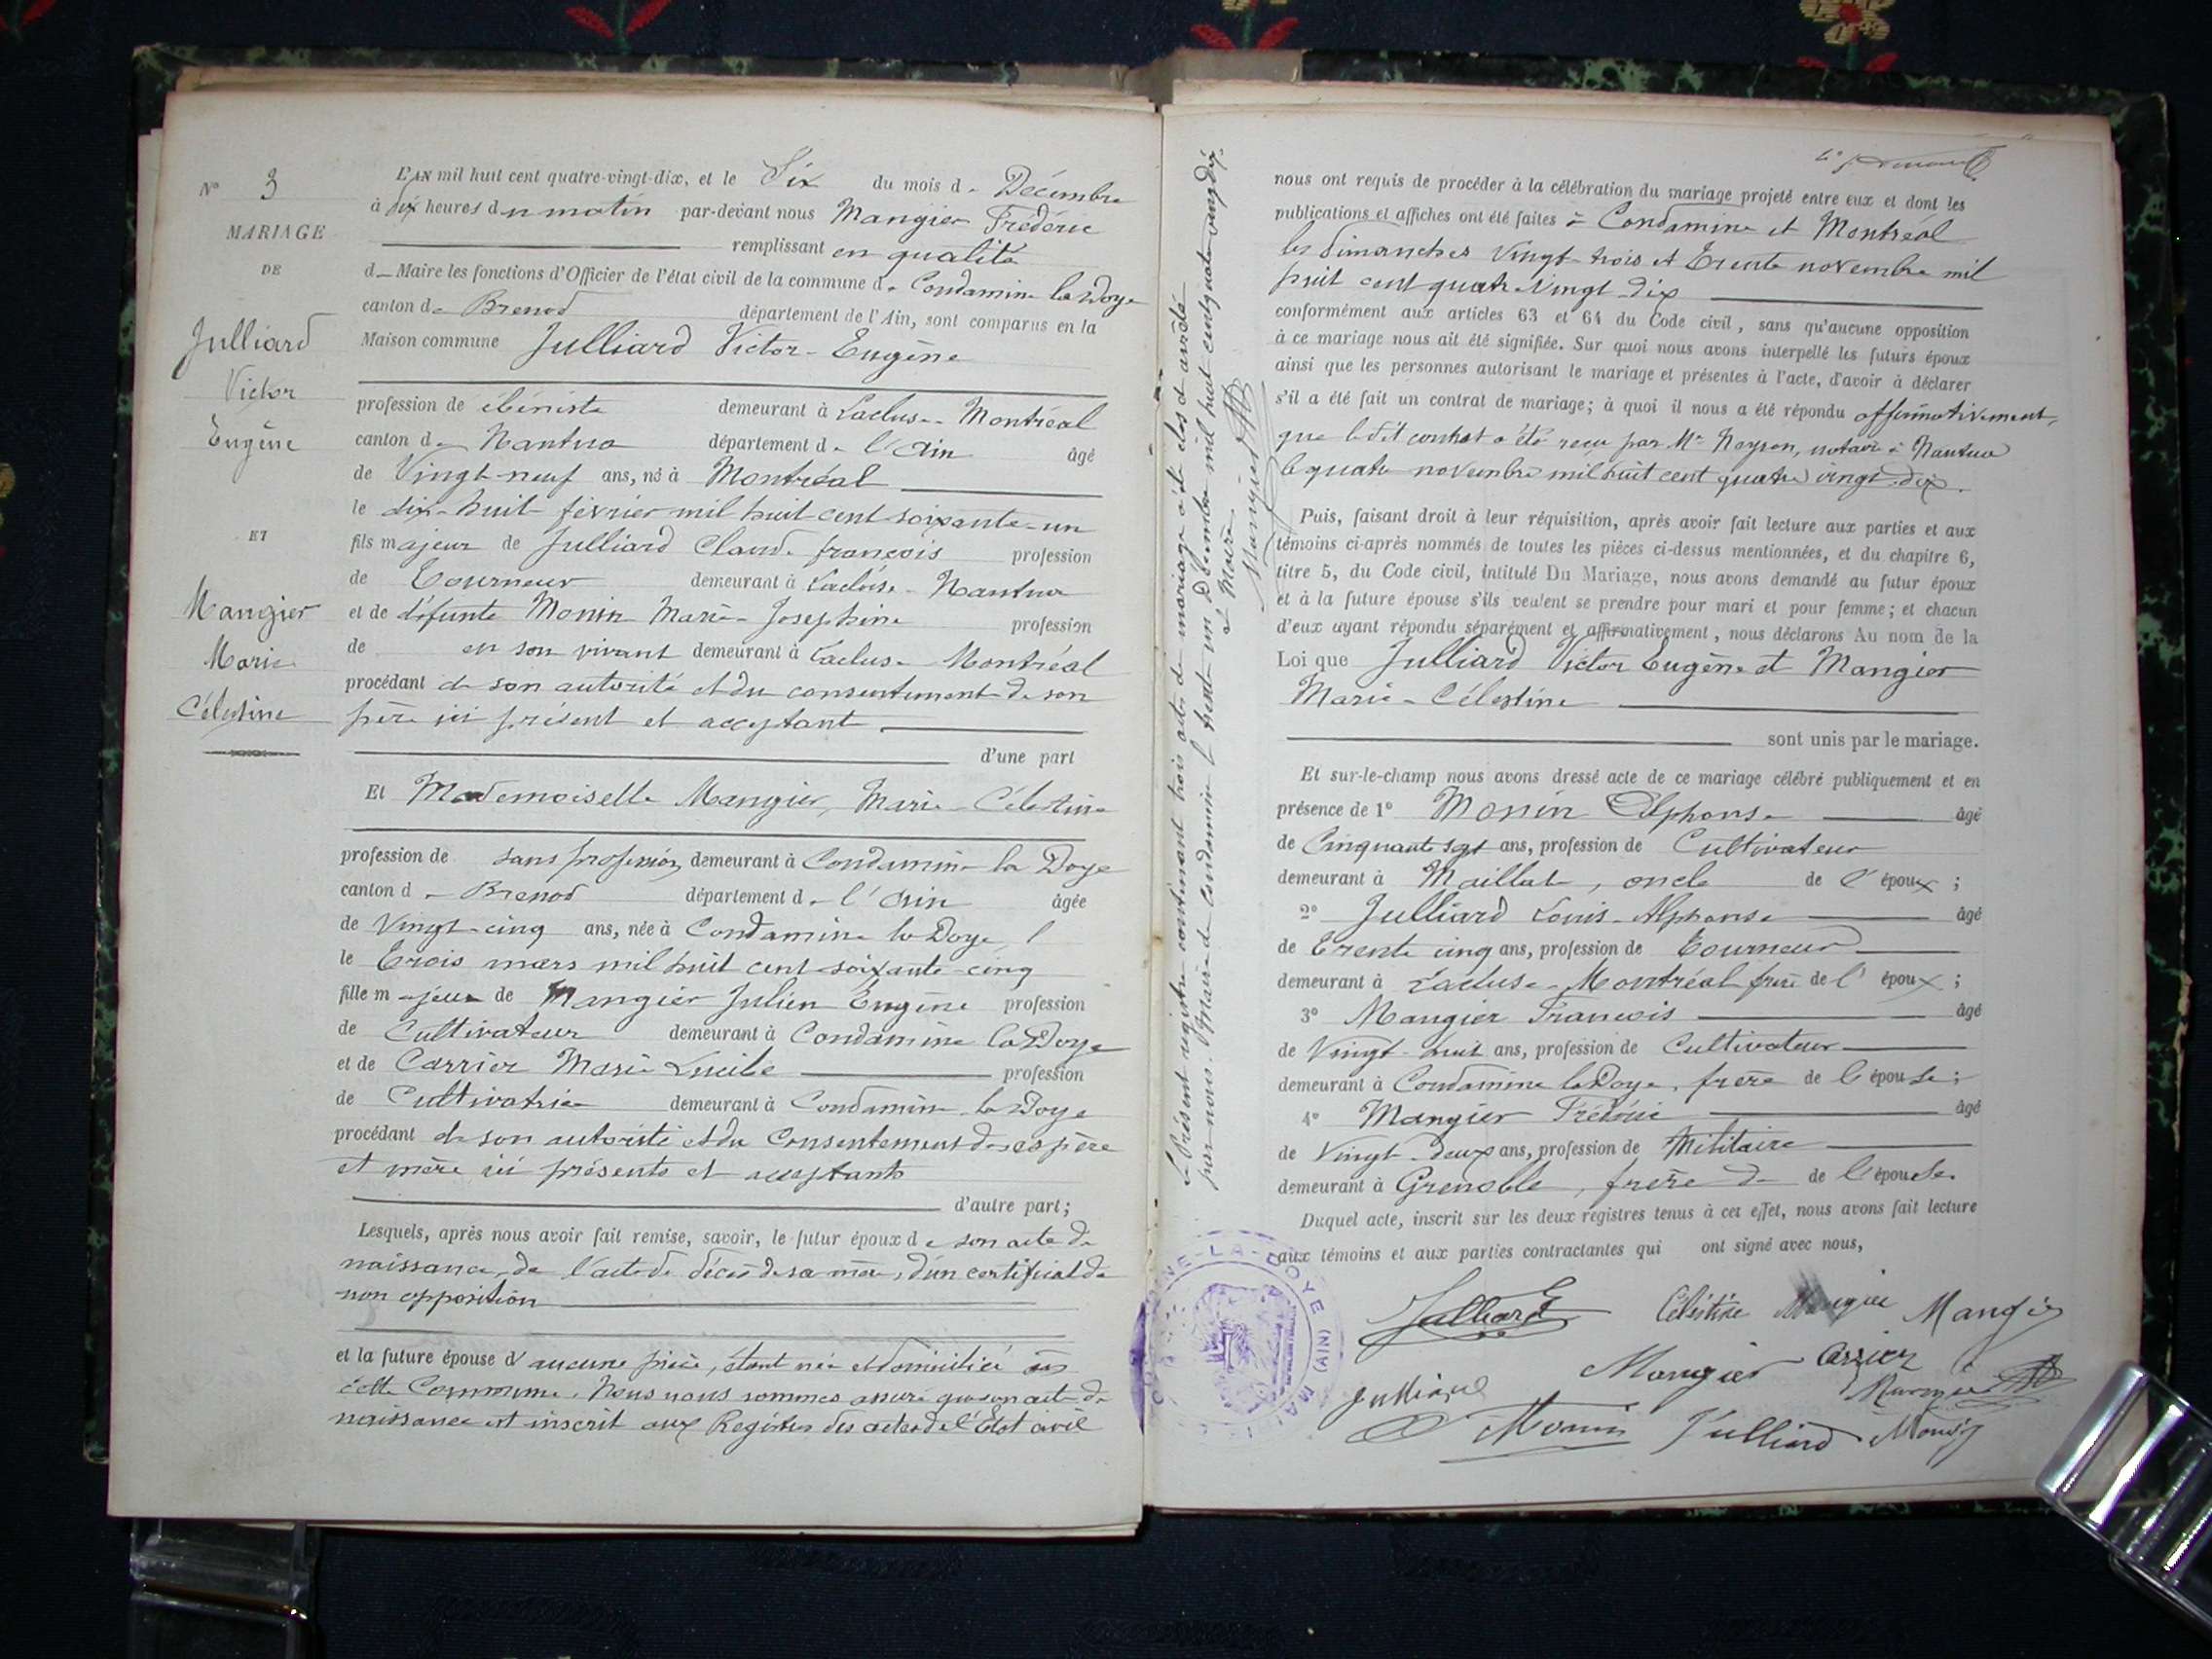 N° 3
MARIAGE
DE
Julliard
Victor
Eugène
ET
Mangier
Marie
Célestine
L'AN mil huit cent quatre-vingt-dix, et le Six du mois de Décembre
à dix heures du matin par-devant nous Mangier Frédéric
remplissant en qualité
d Maire les fonctions d'Officier de l'état civil de la commune de Condamine la Doye
canton de Brenod département de l'Ain, sont comparus en la
Maison commune Julliard Victor-Eugène
profession de ébéniste demeurant à Lacluse-Montréal
canton de Nantua département de l'Ain âgé
de Vingt-neuf ans, né à Montréal
le dix-huit février mil huit cent soixante-un
fils majeur de Julliard Claude françois profession
de Tourneur demeurant à Lacluse-Nantua
et de défunte Monin Marie-Josephine profession
de en son vivant demeurant à Lacluse Montréal
procédant de son autorité et du consentement de son
père ici présent et acceptant
d'une part
Et Mademoiselle Mangier, Marie-Célestine
profession de sans profession demeurant à Condamine la Doye
canton de Brenod département de l'Ain âgée
de Vingt-cinq ans, née à Condamine la Doye
le Trois mars mil huit cent soixante-cinq
fille majeure de Mangier Julien Eugène profession
de Cultivateur demeurant à Condamine la Doye
et de Carrier Marie Lucile profession
de Cultivatrice demeurant à Condamine la Doye
procédant de son autorité et du Consentement de ses père
et mère ici présents et acceptants
d'autre part;
Lesquels, après nous avoir fait remise, savoir, le futur époux de son acte de
naissance, de l'acte de décès de sa mère, d'un certificat de
non opposition
et la future épouse d'aucune pièce, étant née et domiciliée en
cette Commune. Nous nous sommes assuré que son acte de
naissance est inscrit aux Registres des actes de l'Etat civil
Le Présent registre contenant trois actes de mariage a été clos et arrêté
par nous Maire de Condamine le trente un Décembre mil huit cent quatre vingt dix.
Le Maire
Mangier
nous ont requis de procéder à la célébration du mariage projeté entre eux et dont les
publications et affiches ont été faites à Condamine et Montréal
les dimanches Vingt-trois et Trente novembre mil
huit cent quatre Vingt-dix
conformément aux articles 63 et 64 du Code civil, sans qu'aucune opposition
à ce mariage nous ait été signifiée. Sur quoi nous avons interpellé les futurs époux
ainsi que les personnes autorisant le mariage et présentes à l'acte, d'avoir à déclarer
s'il a été fait un contrat de mariage; à quoi il nous a été répondu affirmativement,
que le dit contrat a été reçu par Mr notaire à Nantua
le quatre novembre mil huit cent quatre vingt-dix.
Puis, faisant droit à leur réquisition, après avoir fait lecture aux parties et aux
témoins ci-après nommés de toutes les pièces ci-dessus mentionnées, et du chapitre 6,
titre 5, du Code civil, intitulé Du Mariage, nous avons demandé au futur époux
et à la future épouse s'ils veulent se prendre pour mari et pour femme; et chacun
d'eux ayant répondu séparément et affirmativement, nous déclarons Au nom de la
Loi que Julliard Victor Eugène et Mangier
Marie-Célestine
sont unis par le mariage.
Et sur-le-champ nous avons dressé acte de ce mariage célébré publiquement et en
présence de 1° Monin Alphonse âgé
de Cinquante sept ans, profession de Cultivateur
demeurant à Maillat, oncle de l'époux;
2° Julliard Louis-Alphonse âgé
de Trente cinq ans, profession de Tourneur
demeurant à Lacluse-Montréal frère de l'époux;
3° Mangier Francois âgé
de Vingt-huit ans, profession de Cultivateur
demeurant à Condamine la Doye, frère de l'épouse;
4° Mangier Frédéric âgé
de Vingt-deux ans, profession de Militaire
demeurant à Grenoble, frère de de l'épouse
Duquel acte, inscrit sur les deux registres tenus à cet effet, nous avons fait lecture
aux témoins et aux parties contractantes qui ont signé avec nous,
Julliard E Célestine Mangier Mangier
Mangier Carrier
Julliard Mangier
Monin Julliard
NE-LA-DOYE (AIN) MAI